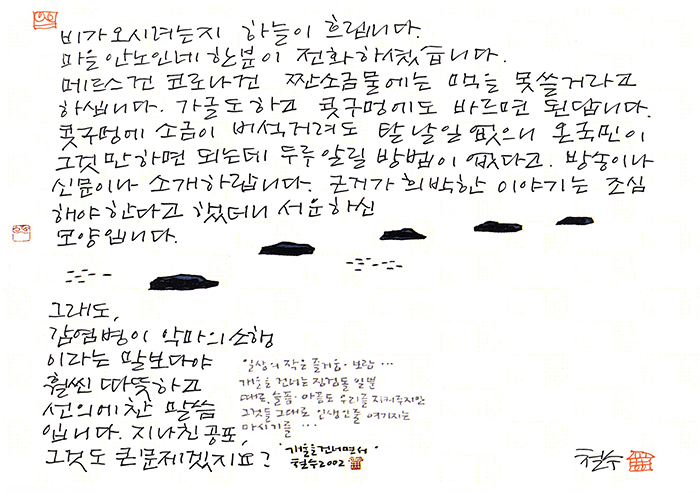 비가 오시려는지 하늘이 흐립니다.
마을 안노인네 한분이 전화하셨습니다.
메르스건 코로나건 짠소금물에는 맥을 못쓸거라고
하십니다. 가글도 하고 콧구멍에도 바르면 된답니다.
콧구멍에 소금이 버석거려도 탈 날일 없으니 온국민이
그것만 하면 되는데 두루 알릴 방법이 없다고. 방송이나
신문이나 소개하랍니다. 근거가 희박한 이야기는 조심
해야 한다고 했더니 서운하신
모양입니다.
그래도,
감염병이 악마의 소행
이라는 말보다야
훨씬 따뜻하고
선의에 찬 말씀
입니다. 지나친 공포,
그것도 큰문제겠지요?
일상의 작은 즐거움·보람 …
개울을 건너는 징검돌 일뿐
때로, 슬픔·아픔도 우리를 지켜주지만
그것들 그대로 인생인줄 여기지는
마시기를 …
'개울을 건너면서'
철수2002
철수